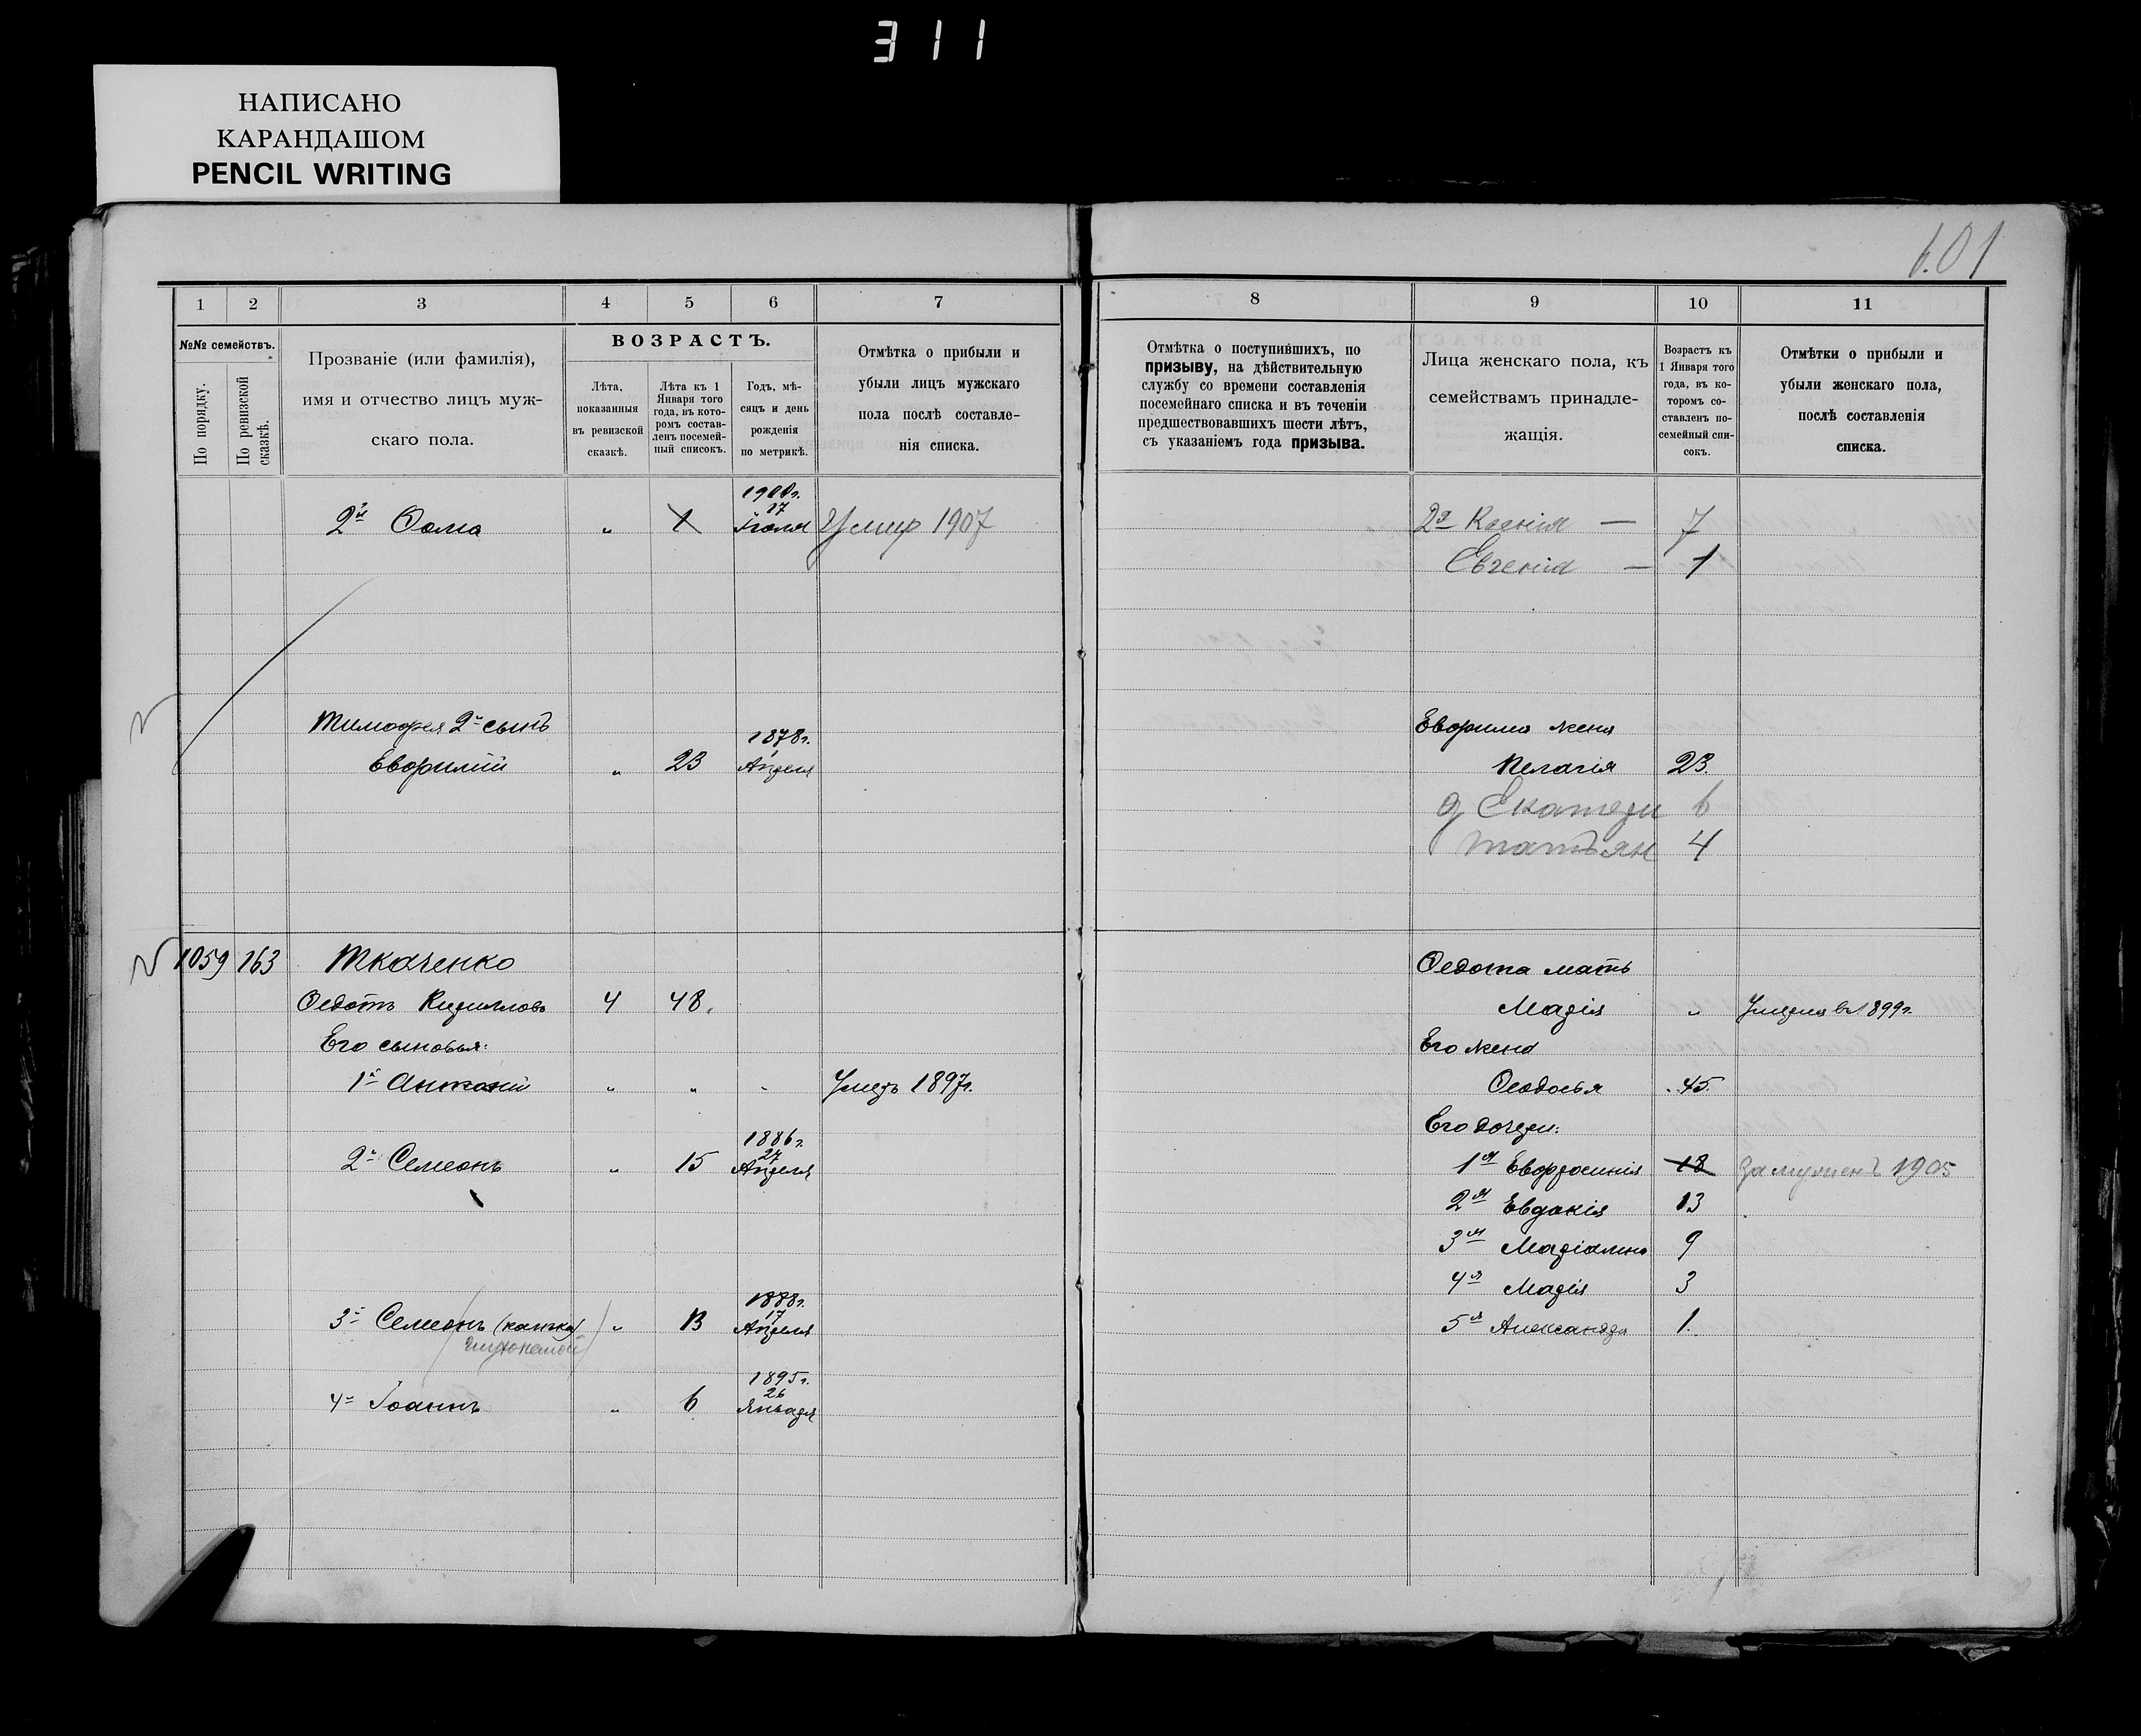 311
НАПИСАНО
КАРАНДАШОМ
PENCIL WRITING
601
1 2 3 4 5 6 7 8 9 10 11
№№ семействъ.
По порядку.
По ревизской сказкѣ.
Прозваніе (или фамилія),
имя и отчество лицъ муж-
скаго пола.
ВОЗРАСТЪ.
Лѣта,
показанныя
въ ревизской
сказкѣ.
Лѣта къ 1
Января того
года, въ кото-
ромъ состав-
ленъ посемей-
ный списокъ.
Годъ, мѣ-
сяцъ и день
рожденія
по метрикѣ.
Отмѣтка о прибыли и
убыли лицъ мужскаго
пола послѣ составле-
нія списка.
Отмѣтка о поступившихъ, по
призыву, на дѣйствительную
службу со времени составленія
посемейнаго списка и въ теченіи
предшествовавшихъ шести лѣтъ,
съ указаніемъ года призыва.
Лица женскаго пола, къ
семействамъ принадле-
жащія.
Возрастъ къ
1 Января того
года, въ ко-
торомъ со-
ставленъ по-
семейный спи-
сокъ.
Отмѣтки о прибыли и
убыли женскаго пола,
послѣ составленія
списка.
1900г.
17
2й Ѳома " 1 Іюля Умир 1907 2я Ксенія — 7
Евгенія — 1
Тимоѳея 2й сынъ Евфима жена
1878г.
1
Евфимій " 23 Апреля Пелагія 23.
д Екатери 6
Татьян 4
1059 163 Ткаченко Ѳедота мать
Ѳедотъ Кирилловъ 4 48. Марія " Умерла в 1899г.
Его сыновья: Его жена
1й Антоній " " " Умеръ 1897г. Ѳеодосья 45.
Его дочери:
1886г.
27
2й Семеонъ " 15 Апреля 1я Евфросинія 18 Замужемъ 1905
2я Евдокія 13
3я Маріамна 9
4я Марія 3
1888г.
17
3й Семеонъ " 13 Апреля 5я Александра 1.
глухонемой
1895г.
26
4й Іоаннъ " 6 Января